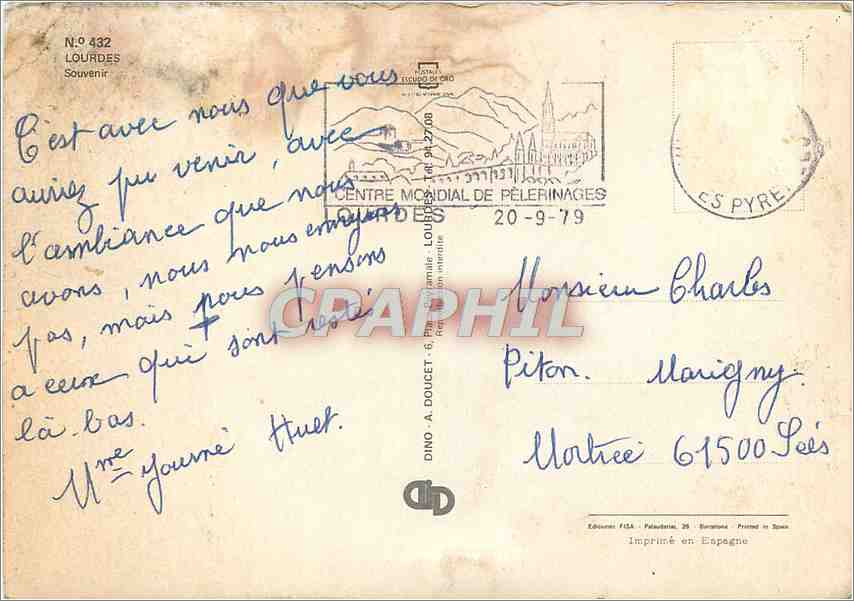 N.º 432
LOURDES
Souvenir
POSTALES
ESCUDO DE ORO
C'est avec nous que vous
auriez pu venir, avec
l'ambiance que nous
avons, nous nous ennuyons
pas, mais nous pensons
a ceux qui sont restés
là-bas.
Mme Journé Huet.
CENTRE MONDIAL DE PÈLERINAGES
LOURDES 20-9-79
ES PYRE
DINO - A. DOUCET - 6, Place Peyramale - LOURDES - Tél. 94.27.08
Reproduction interdite
CPAPHIL
Monsieur Charles
Piton. Marigny.
Mortrée 61500 Sées
Ediciones FISA - Palaudarias, 26 - Barcelona - Printed in Spain
Imprimé en Espagne